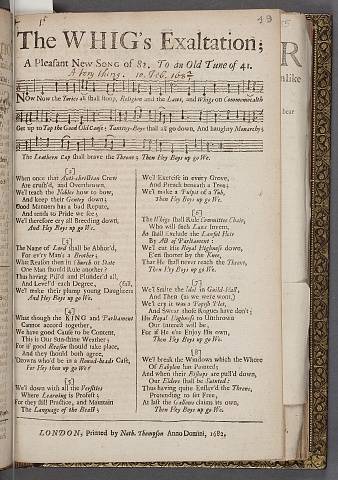 49
The WHIG's Exaltation;
A Pleasant New Song of 82. To an Old Tune of 41.
10. Feb. 168½
NOw Now the Tories all shall stoop, Religion and the Laws, and Whigs on Commonwealth
Get up to Tap the Good Old Cause; Tantivy-Boys shall all go down, And haughty Monarchy;
The Leathern Cap shall brave the Throne; Then Hey Boys up go We.
[2]
When once that Anti-christian Crew
Are crush'd, and Overthrown,
We'l teach the Nobles how to bow,
And keep their Gentry down:
Good Manners has a bad Repute,
And tends to Pride we see;
We'l therefore cry all Breeding down,
And Hey Boys up go We.
[3]
The Name of Lord shall be Abhor'd,
For ev'ry Man's a Brother;
What Reason then in Church or State
One Man should Rule another?
Thus having Pill'd and Plunder'd all,
And Level'd each Degree, (fall,
We'l make their plump young Daughters
And Hey Boys up go We.
[4]
What though the KING and Parliament
Cannot accord together,
We have good Cause to be Content,
This is Our Sunshine Weather;
For if good Reason should take place,
And they should both agree,
D'zowns who'd be in a Round-heads Case,
For Hey then up go We?
[5]
We'l down with all the Versities
Where Learning is Profest;
For they still Practice, and Maintain
The Language of the Beast;
We'l Exercise in every Grove,
And Preach beneath a Tree;
We'l make a Pulpit of a Tub,
Then Hey Boys up go We.
[6]
The Whigs shall Rule Committee Chair,
Who will such Laws Invent,
As shall Exclude the Lawful Heir
By Act of Parliament:
We'l cut His Royal Highness down,
E'en shorter by the Knee,
That He shall never reach the Throne,
Then Hey Boys up go We.
[7]
We'l Smite the Idol in Guild-Hall,
And Then (as we were wont,)
We'l cry it was a Popish Plot,
And Swear those Rogues have don't;
His Royal Highness to Unthrown
Our Interest will be,
For if He e're Enjoy His Own,
Then Hey Boys up go We.
[8]
We'l break the Windows which the Whore
Of Babylon has Painted;
And when their Bishops are pull'd down,
Our Elders shall be Sainted:
Thus having quite Enslav'd the Throne,
Pretending to set Free,
At last the Gallows claims its own,
Then Hey Boys up go We.
LONDON, Printed by Nath. Thompson Anno Domini, 1682.
R
nlike
hear